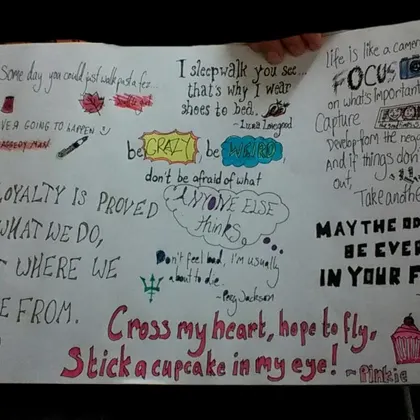 Some day you could just walk past a fez...
EVER GOING TO HAPPEN
RAGGEDY MAN
LOYALTY IS PROVED
WHAT WE DO,
WHERE WE
E FROM.
I sleepwalk you see...
that's why I wear
shoes to bed.
~ Luna Lovegood
be CRAZY, be WEIRD
don't be afraid of what
ANYONE ELSE
thinks.
Don't feel bad, I'm usually
about to die.
~Percy Jackson
life is like a camer
FOCUS
on what's important
Capture
Develop from the neg
And if things don'
out,
Take anothe
MAY THE OD
BE EVER
IN YOUR F
Cross my heart, hope to fly,
Stick a cupcake in my eye!
~ Pinkie